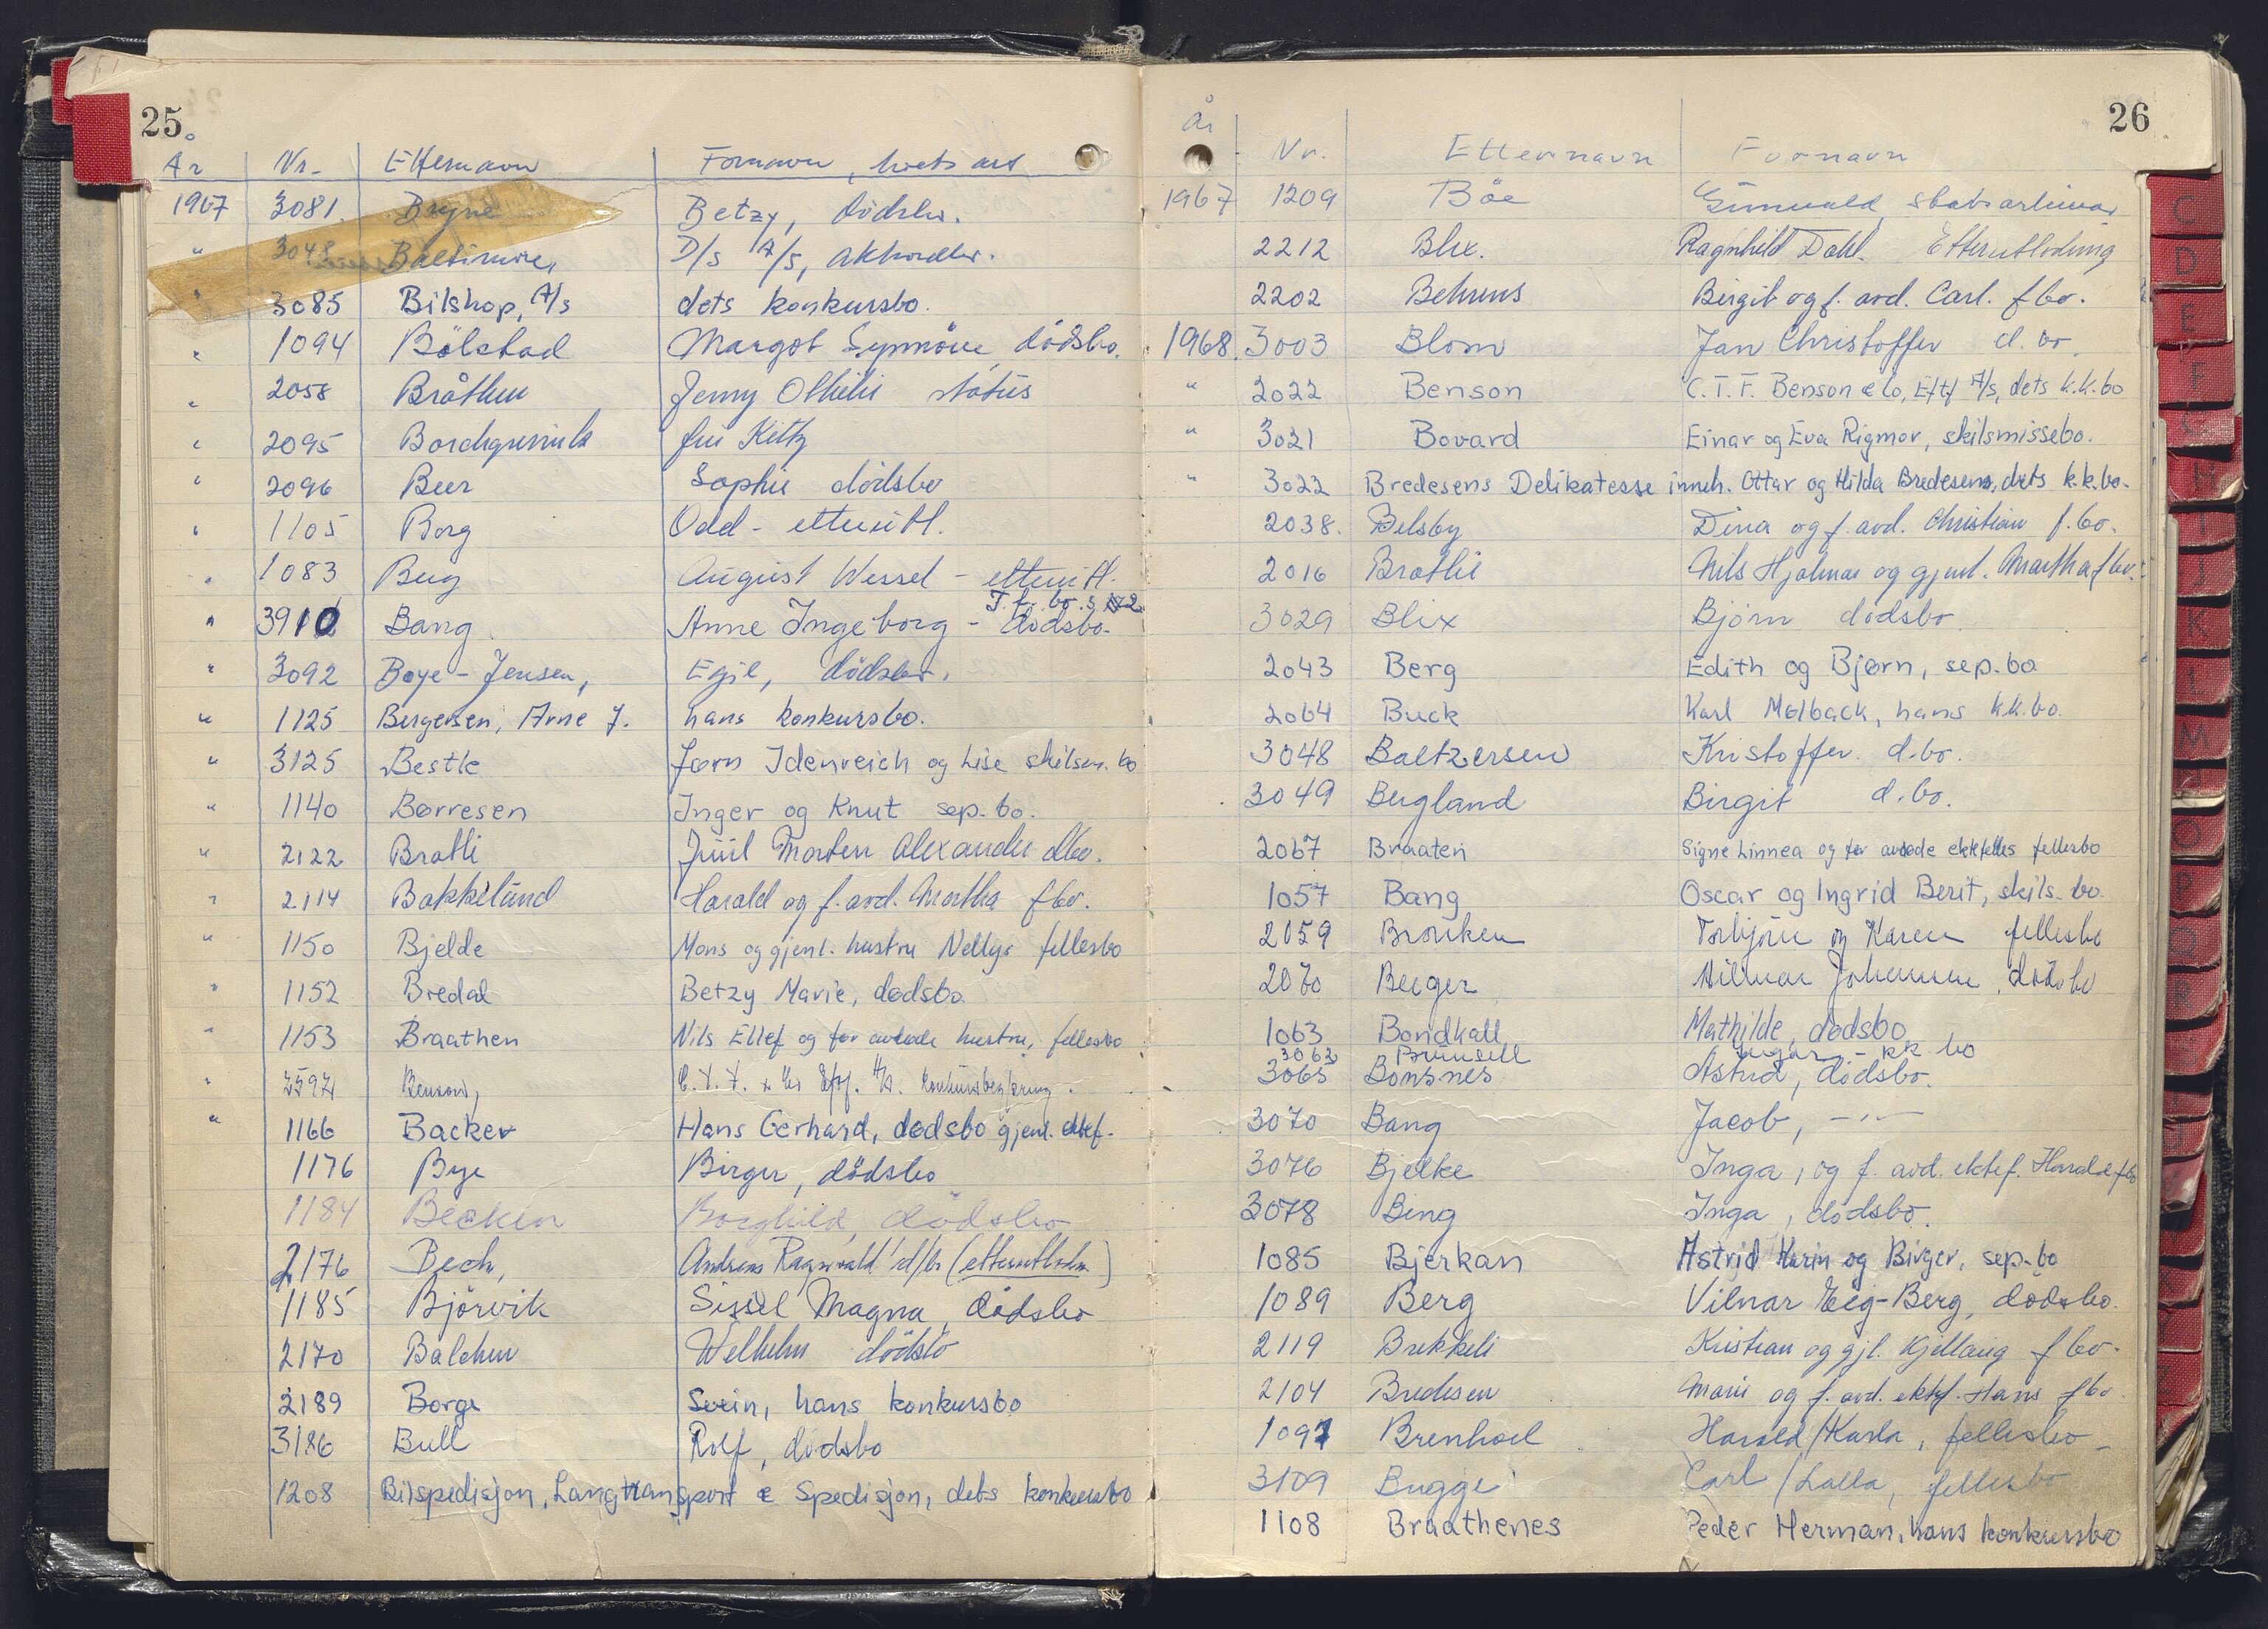 25
År Nr. Etternavn Fornavn, boets art
1967 3081. Bryne Betzy, dödsbo.
" 3048 Baltimore, D/s A/s, akkordbo.
" 3085 Bilshop, A/s dets konkursbo.
" 1094 Bölstad Margot Synnöve dödsbo.
" 2058 Bråthen Jenny Othilie status
" 2095 Borchgrevink fru Kitty
" 2096 Beer Sophie dödsbo
" 1105 Borg Odd - etterutl.
" 1083 Berg August Wessel - etterutl.
" 3910 Bang Anne Ingeborg - dödsbo.
" 3092 Boye-Jensen, Egil, dödsbo.
" 1125 Bergersen, Arne J. hans konkursbo.
" 3125 Bestle Jørn Idenreich og Lise skilsm. bo
" 1140 Børresen Inger og Knut sep. bo.
" 2122 Bratli Juul Morten Alexander dbo.
" 2114 Bakkelund Harald og f. avd. Martha fbo.
" 1150 Bjelde Mons og gjenl. hustru Nellys fellesbo
" 1152 Bredal Betzy Marie, dødsbo.
" 1153 Braathen Nils Ellef og før avdøde hustru, fellesbo
" Benson, Eftf. A/s. konkursbegjæring.
" 1166 Backer Hans Gerhard, dødsbo gjenl. ektef.
1176 Bye Birger, dödsbo
1184 Becken Borghild, dödsbo
2176 Bech, Andreas Ragnvald d/b (etterutlodn)
1185 Björvik Sissel Magna, dödsbo
2170 Balchen Wilhelm dödsbo
2189 Borge Svein, hans konkursbo
3186 Bull Rolf, dödsbo
1208 Bilspedisjon, Langtransport & Spedisjon, dets konkursbo
26
År Nr. Etternavn Fornavn
1967 1209 Böe Gunvald
2212 Blix. Ragnhild Dahl. Etterutlodning
2202 Behrens Birgit og f. avd. Carl. fbo.
1968. 3003 Blom Jan Christoffer d. bo.
" 2022 Benson C.T.F. Benson & Co, Eftf A/s, dets k.k.bo
" 3021 Bovard Einar og Eva Rigmor, skilsmissebo.
" 3022 Bredesens Delikatesse inneh. Ottar og Hilda Bredesens, dets k.k.bo.
2038. Belsby Dina og f. avd. Christian f.bo.
2016 Brathe Nils Hjalmar og gjenl. Martha fbo.
3029 Blix Bjørn dødsbo.
2043 Berg Edith og Bjørn, sep.bo
2064 Buck Karl Molback, hans k.k.bo.
3048 Baltzersen Kristoffer d.bo.
3049 Bergland Birgit d.bo.
2067 Braaten Signe Linnea og før avdøde ektefelles fellesbo
1057 Bang Oscar og Ingrid Berit, skils. bo.
2059 Bronken Torbjörn og Karen fellesbo
2070 Berger Hilmar Johannes, dödsbo
1063 Bondkall Mathilde, dødsbo
3062 Brunsell Ingar - kk bo
3065 Bonsnes Astrid, dödsbo.
3070 Bang Jacob, -"-
3076 Bjelke Inga, og f. avd. ektef. Harald fbo
3078 Bing Inga, dödsbo.
1085 Bjerkan Astrid Karin og Birger, sep.bo
1089 Berg Vilnar Eeg-Berg, dödsbo.
2119 Brekkeli Kristian og gjl. Kjellaug fbo.
2104 Bredesen Marie og f. avd. ektef. Hans fbo.
1097 Brenhoel Harald/Karla, fellesbo
3109 Bugge Carl/Lalla, fellesbo
1108 Braathenes Peder Herman, hans konkursbo
C
D
E
F
G
H
I
J
K
L
M
N
O
P
Q
R